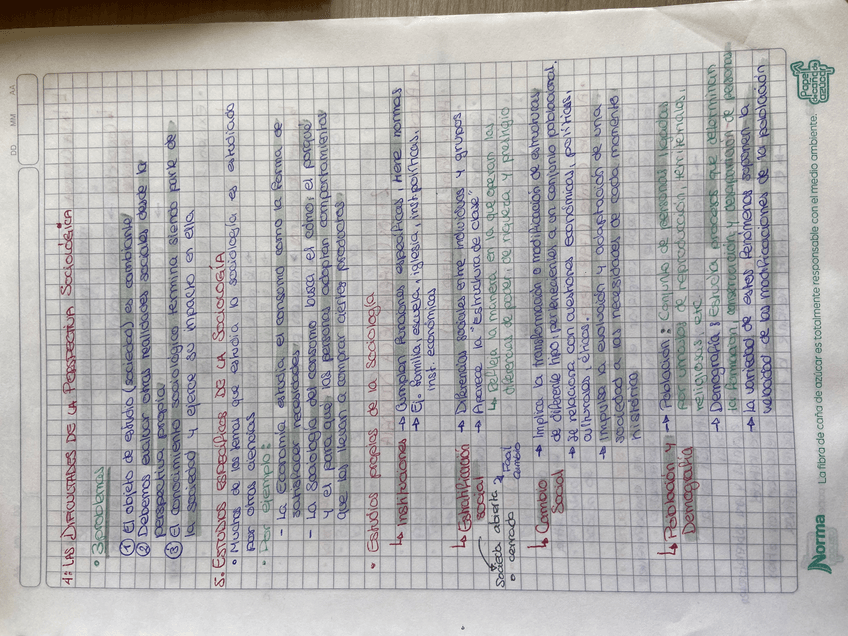 DD MM AA
4: LAS DIFICULTADES DE LA PERSPECTIVA SOCIOLÓGICA
• 3 problemas
① El objeto de estudio (sociedad) es cambiante
② Debemos evaluar otras realidades sociales desde la
perspectiva propia
③ El conocimiento sociológico termina siendo parte de
la sociedad y ejerce su impacto en ella
5. ESTUDIOS ESPECÍFICOS DE LA SOCIOLOGÍA
• Muchos de los temas que estudia la sociología, es estudiado
por otras ciencias
• Por ejemplo:
- La Economía estudia el consumo como la forma de
satisfacer necesidades
- La Sociología del consumo busca el cómo, el porqué
y el para qué, las personas adoptan comportamientos
que los llevan a comprar ciertos productos
• Estudios propios de la Sociología
↳ Instituciones → Cumplen funciones específicas, tiene normas
→ Ej: familia, escuela, iglesia, inst. políticas,
inst. económicas
↳ Estratificación social → Diferencias sociales entre individuos y grupos.
→ Aparece la "Estructura de clase"
↳ Refleja la manera en la que operan las
diferencias de poder, de riqueza y prestigio
Sociedad abierta → Fácil cambio
• cerrada
↳ Cambio Social → Implica la transformación o modificación de estructuras
de diferente tipo pertenecientes a un conjunto poblacional.
→ Se relaciona con cuestiones económicas, políticas,
culturales, éticas.
→ Impulsa la evolución y adaptación de una
sociedad a las necesidades de cada momento
histórico
↳ Población y Demografía → Población: Conjunto de personas ligadas
por vínculos de reproducción, territoriales,
religiosas, etc
→ Demografía: Estudia procesos que determinan
la formación, conservación y desaparición de personas
→ La variedad de estos fenómenos suponen la
velocidad de las modificaciones de la población
Norma
La fibra de caña de azúcar es totalmente responsable con el medio ambiente.
Papel de caña de azúcar